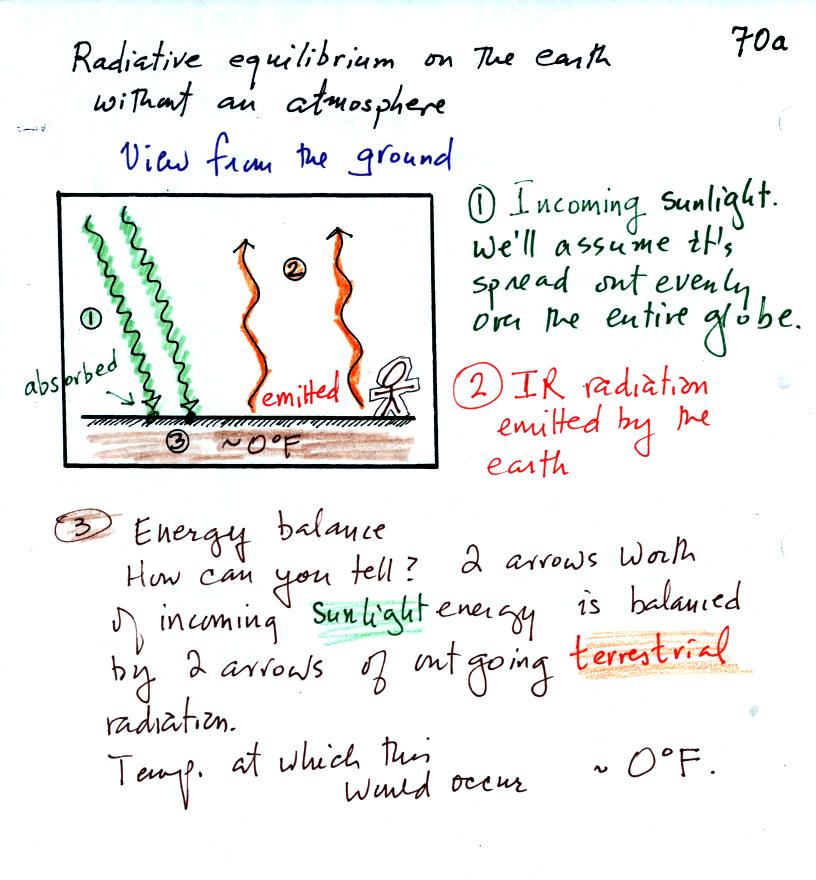 70a
Radiative equilibrium on the earth
without an atmosphere
View from the ground
① Incoming sunlight.
We'll assume it's
spread out evenly
over the entire globe.
①
②
absorbed
emitted
③ ~0°F
② IR radiation
emitted by the
earth
③ Energy balance
How can you tell? 2 arrows worth
of incoming sunlight energy is balanced
by 2 arrows of outgoing terrestrial
radiation.
Temp. at which this
would occur ~ 0°F.